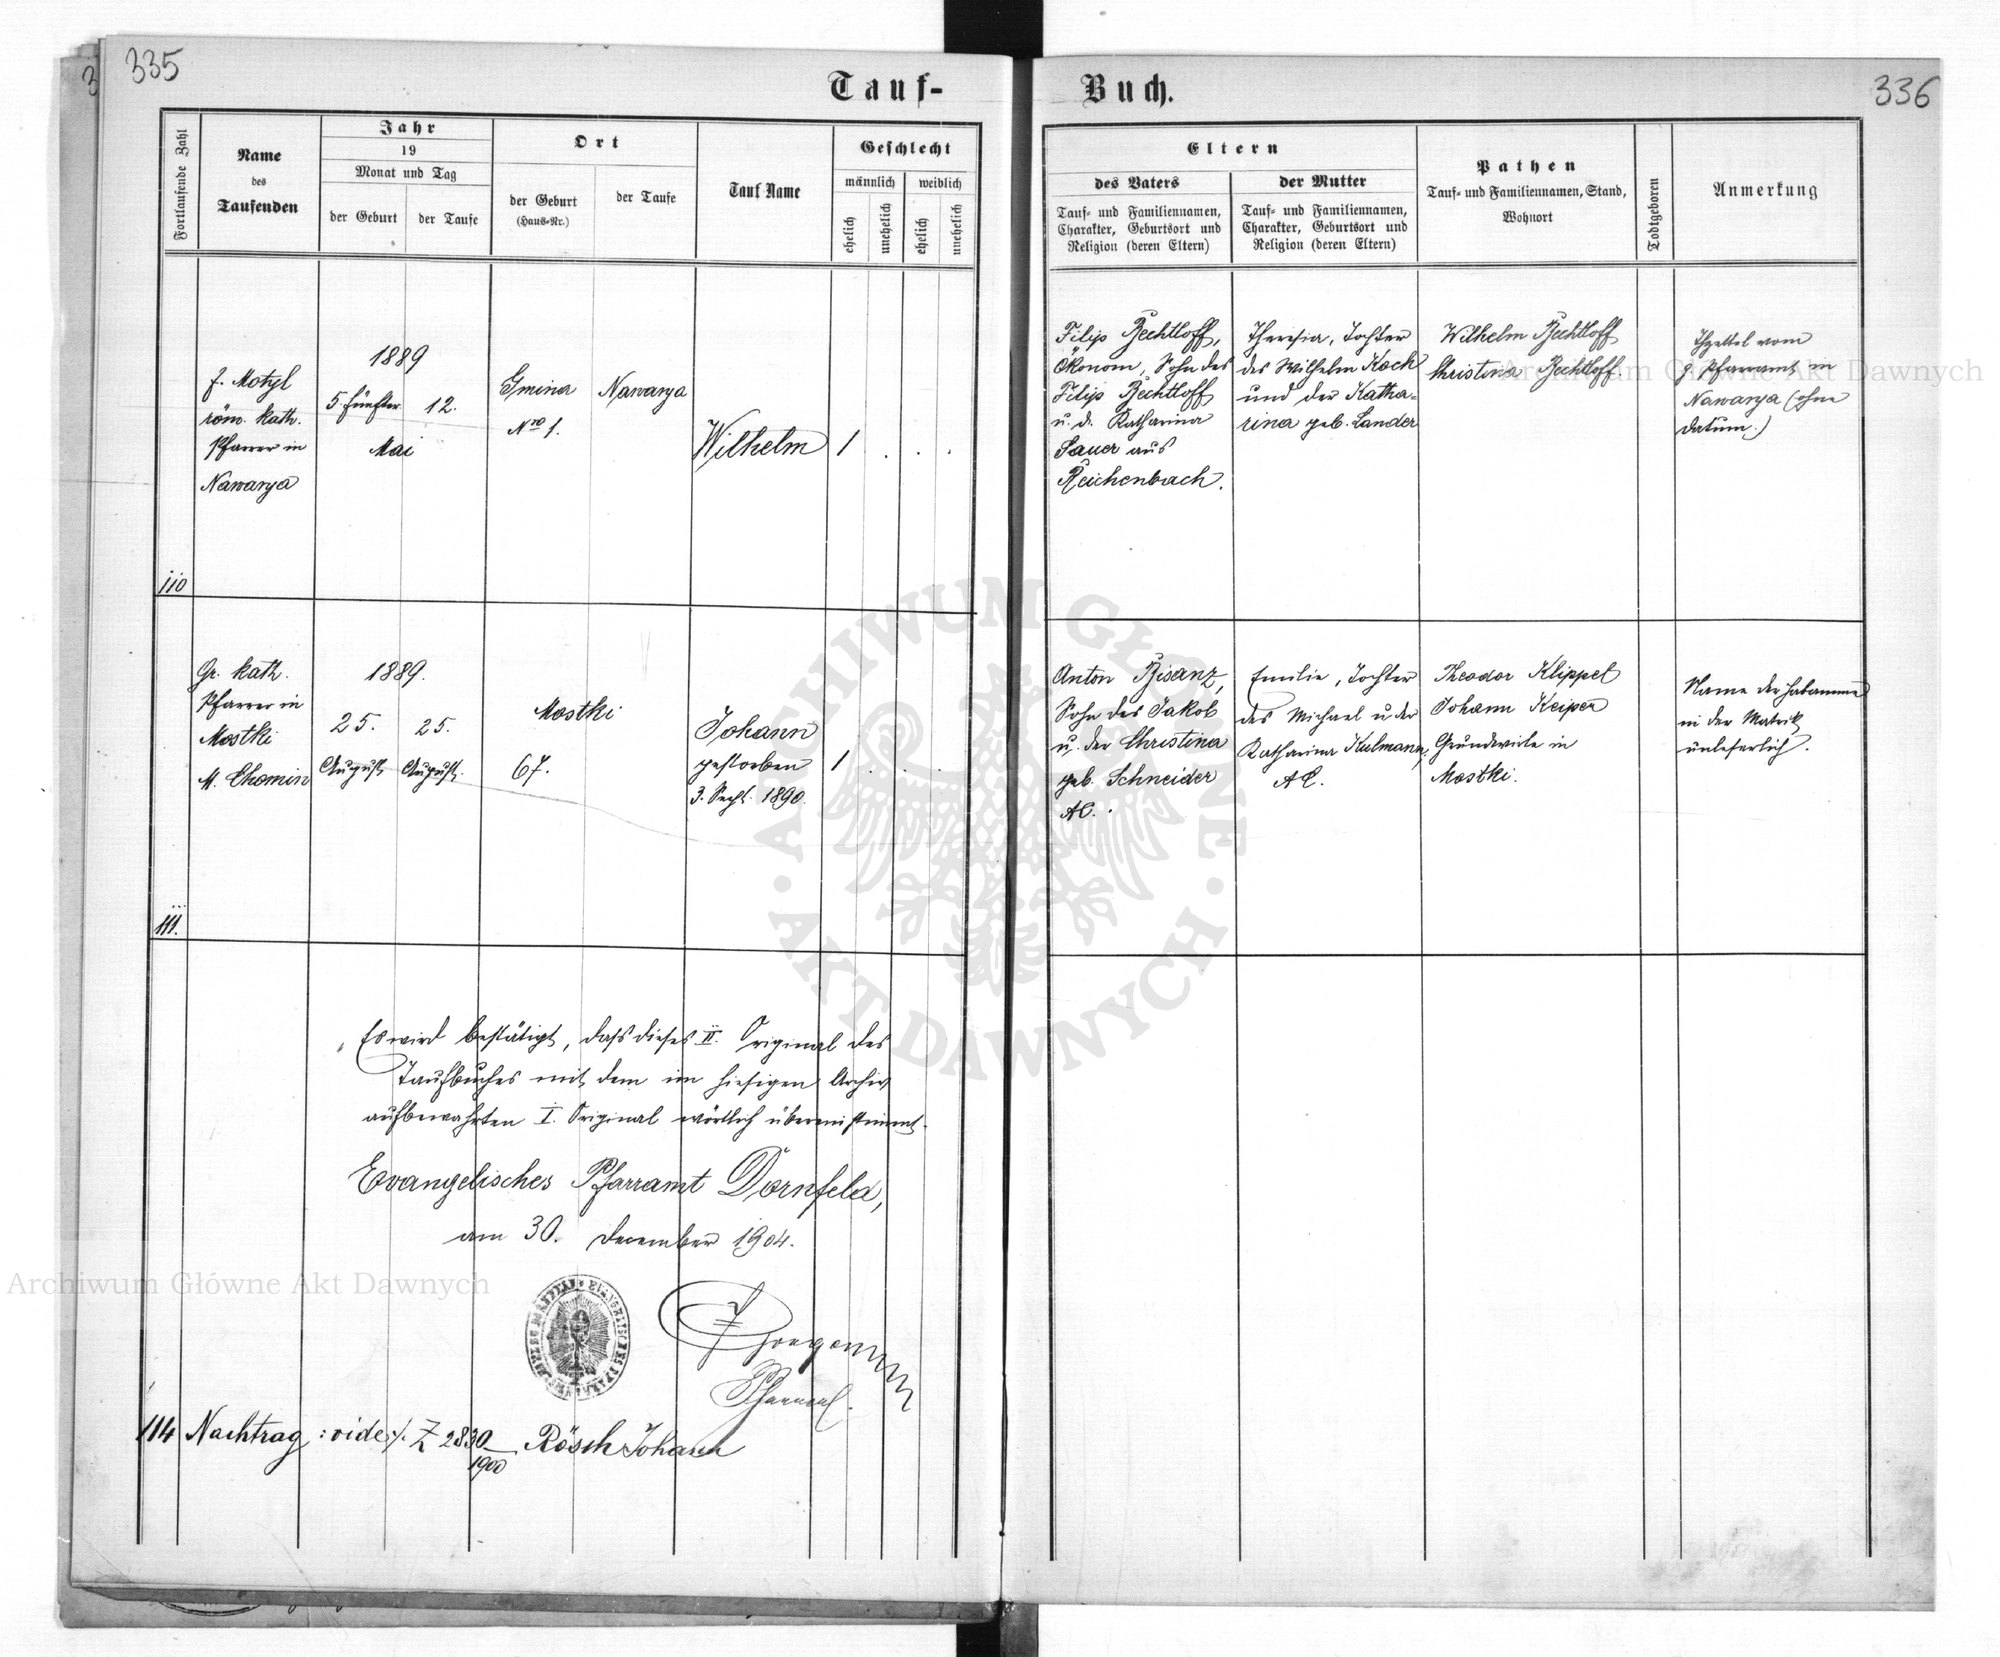 335
Tauf-
Buch.
336
Fortlaufende Zahl
Name
des
Taufenden
Jahr
19
Monat und Tag
der Geburt
der Taufe
Ort
der Geburt
(Haus-Nr.)
der Taufe
Tauf Name
Geschlecht
männlich
weiblich
ehelich
unehelich
ehelich
unehelich
Eltern
des Vaters
Tauf- und Familiennamen,
Charakter, Geburtsort und
Religion (deren Eltern)
der Mutter
Tauf- und Familiennamen,
Charakter, Geburtsort und
Religion (deren Eltern)
Pathen
Tauf- und Familiennamen, Stand,
Wohnort
Todtgeboren
Anmerkung
110
f. Motyl
röm. kath.
Pfarrer in
Nawarya
1889
5. fünfter
12.
Mai
Gmina
Nro 1.
Nawarya
Wilhelm
1
Filip Bechtloff,
Ökonom, Sohn des
Filip Bechtloff
u. d. Katharina
Sauer aus
Reichenbach.
Theresia, Tochter
des Wilhelm Koch
und der Katha-
rina geb. Lander
Wilhelm Bechtloff
Christina Bechtloff
vom
Pfarramt in
Nawarya (ohne
Datum.)
111.
Gr. kath.
Pfarrer in
Mostki
M. Chomin
1889.
25.
August
25.
August.
Mostki
67.
Johann
gestorben
3. Sept. 1890.
1
Anton Bisanz,
Sohn des Jakob
u. der Christina
geb. Schneider
AC.
Emilie, Tochter
des Michael u der
Katharina Kulmann,
AC.
Theodor Klippel
Johann Keiper
Grundwirte in
Mostki.
Name der Hebamme
in der Matrik
unleserlich.
Es wird bestätigt, dass dieses II. Original des
Taufbuches mit dem im hiesigen Archiv
aufbewahrten I. Original wörtlich übereinstimmt.
Evangelisches Pfarramt Dornfeld,
am 30. December 1904.
Pfarrer.
114 Nachtrag : vide ./. Z 2830
1900
Rösch Johann
Archiwum Główne Akt Dawnych
Archiwum Główne Akt Dawnych
ARCHIWUM GŁÓWNE
AKT DAWNYCH